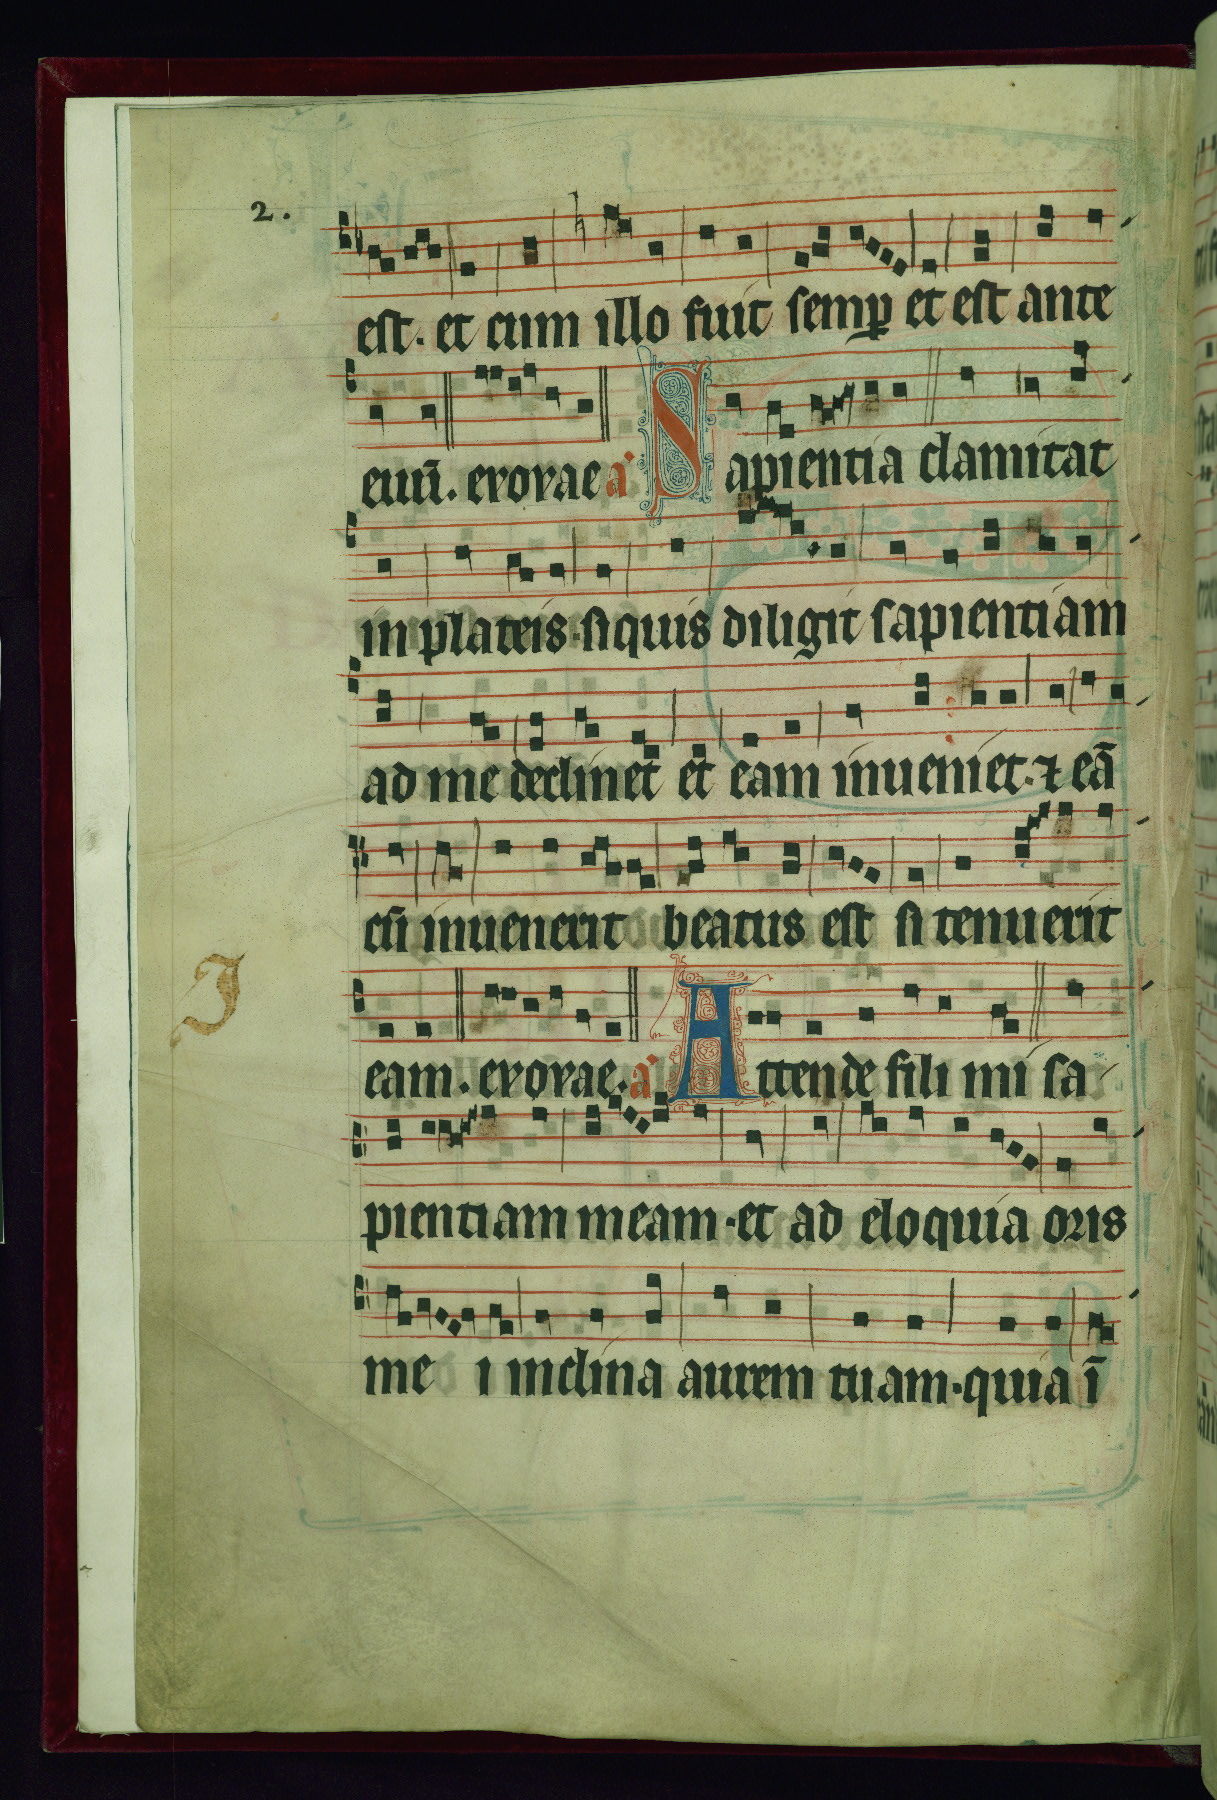 2.
est. et cum illo fuit semꝑ et est ante
euū. evovae a̓ Sapientia clamitat
in plateis. si quis diligit sapientiam
ad me declinet et eam inueniet. ⁊ eā
cū inuenerit beatus est si tenuerit
eam. evovae. a̓ Attende fili mi sa
pientiam meam. et ad eloquia oris
me i inclina aurem tuam. quia ī